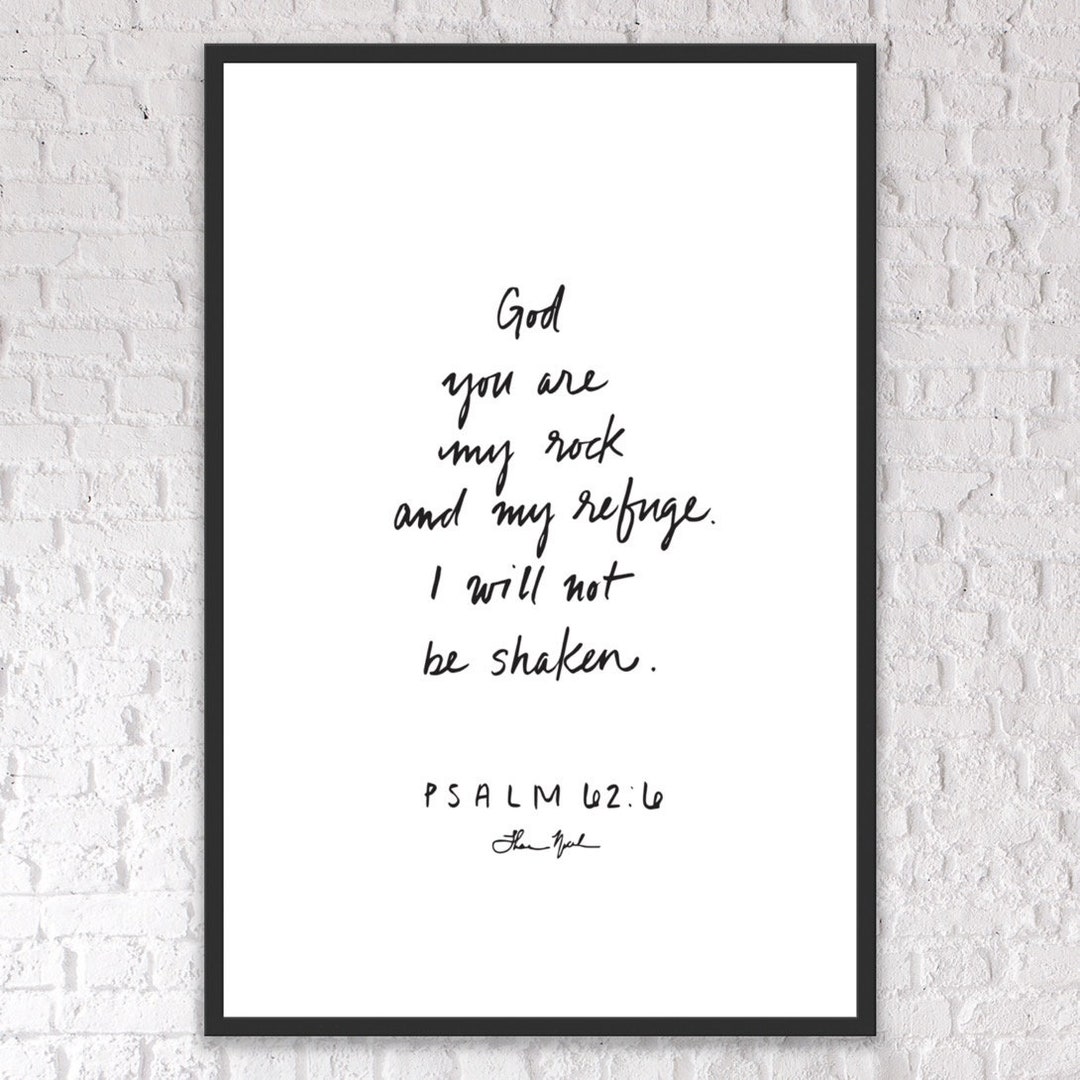 God
you are
my rock
and my refuge.
I will not
be shaken.
PSALM 62:6